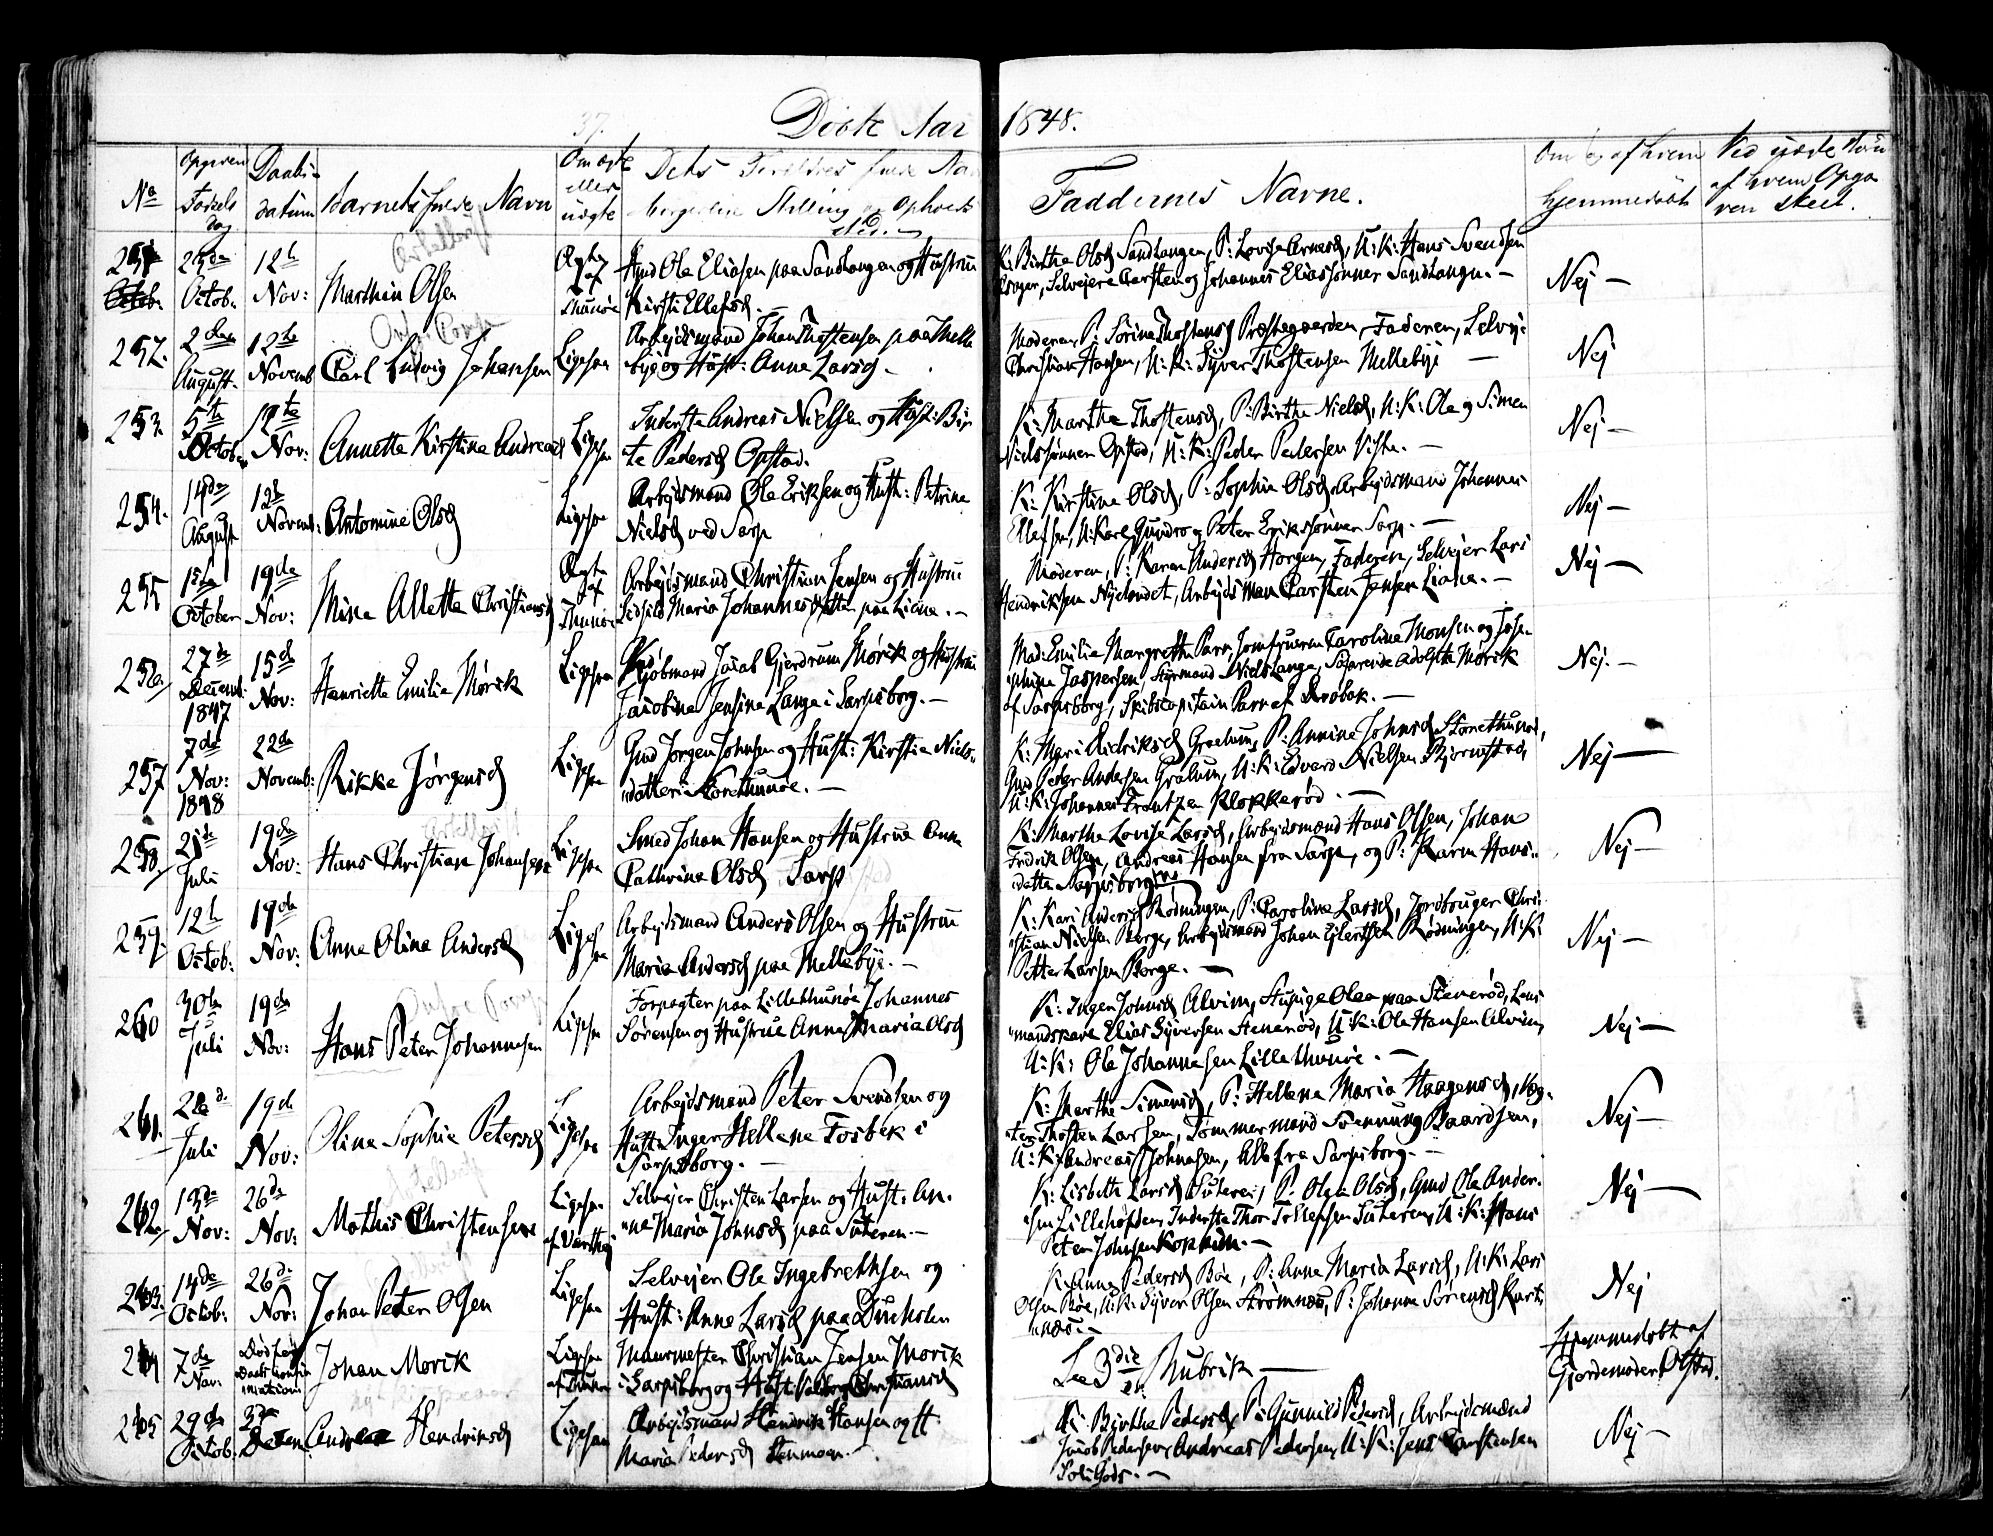 37.
Döbte Aar 1848.
No
Opgiven Fødsels dag
Daabs datum
Barnets fulde Navn
Om ægte eller uægte
Dets Forældres fulde Navn
borgerlige Stilling og Opholds
sted.
Faddernes Navne.
Om og af hvem
hjemmedöbt
Ved uægte Børn
af hvem Opga
ven skeet.
251
25de Octob:
12te Nov:
Marthin Olsen
Ægte af Thunøe
Gmd Ole Eliasen paa Sandtangen og Hustrue
Kirsti Ellefsd
K: Birthe Olsd Sandtangen, P: Lovise Arnesd, U:K: Hans Svendsen
Selvejere Carsten og Johannes Eliassønner Sandtangen. —
Nej —
252.
2den August
12te Novemb
Carl Ludvig Johansen
Ligesaa
Arbejdsmand Johan Thostensen paa Melle
bye og Hust: Anne Larsd —
Moderen, P: Sørine Thostensd Præstegaarden, Faderen, Selvej:
Christian Hansen, U:K: Syver Thostensen Mellebye —
Nej
253.
5te October
12te Nov:
Annette Kirstine Andreasd
Ligesaa
Inderste Andreas Nielsen og Hust: Bir
te Pedersd Opstad.
K: Marthe Thostensd, P: Birthe Nielsd, U:K: Ole og Simen
Nielssønner Opstad, U:K: Peder Pedersen Viste. —
Nej —
254.
14de August
12te Novemb:
Antomine Olsd
Ligesaa
Arbejdsmand Ole Eriksen og Hust: Petrine
Nielsd ved Sarp
K: Kirstine Olsd, P: Sophie Olsd, Arbejdsmand Johannes
Ellefsen, U:Karl Gundro og Peter Erikssønner Sarp. —
Nej —
255
1ste October
19de Nov:
Mina Allette Christiansd
Ægte af Thunøe
Arbejdsmand Christian Jensen og Hustrue
Maria Johannesdatter paa Liane. —
Moderen, P: Karen Andersd Horgen, Faderen, Selvejer Lars
Hendriksen Nyelandet, Arbejdsman Carsten Jensen Liane. —
Nej —
256.
27de Decemb: 1847
15de Nov:
Henriette Emilie Mørik
Ligesaa
Kjøbmand Jacob Gjerdrum Mørik og Hustrue
Jacobine Jensine Lange i Sarpsborg. —
Mad: Emilie Margrethe Parr, Jomfruerne Caroline Monsen og Jose
phine Jaspersen, Styrmand Niels Lange, Søfarende Adolph Mørik
af Sarpsborg, Skibscapitain Parr af Drøbak. —
Nej. —
257
7de Nov: 1848
22de Novemb:
Rikke Jørgensd
Ligesaa
Gmd Jørgen Johnsen og Hust: Kirstie Niels
datter: Storethunøe. —
K: Mari Didriksd Graalum, P: Annine Johnsd Storethunøe,
Gmd Peder Andersen Graalum, U:K: Edvard Nielsen Bjørnstad,
U:K: Johannes Frantzen Klokkerød. —
Nej —
258.
25de Juli
19de Nov:
Hans Christian Johansen
Ligesaa
Smed Johan Hansen og Hustrue Anne
Cathrine Olsd Sarp
K: Marthe Lovise Larsd, Arbejdsmand Hans Olsen, Johan
Fredrik Olsen, Andreas Hansen fra Sarp, og P: Karen Hans
datter Sarpsborg
Nej —
259.
12te Octob:
19de Nov:
Anne Oline Andersd
Ligesaa
Arbejdsmand Anders Olsen og Hustrue
Maria Andersd paa Mellebye. —
K: Kari Andersd Rødningen, P: Caroline Larsd, Jordbruger Chri
stian Nielsen Borge, Arbejdsmand Johan Ejlertsen Rødningen, U:K:
Petter Larsen Borge. —
Nej —
260
30te Juli
19de Nov:
Hans Peter Johannesen
Ligesaa
Forpagter paa Lillethunøe Johannes
Sørensen og Hustrue Anne Maria Olsd
K: Ingen Johnsd Alvim, Pupige Olea paa Stenerød, Lens
mandskarl Elias Syversen Stenerød, U:K: Ole Hansen Alvim,
U:K: Ole Johannesen Lillethunøe. —
Nej —
261.
22de Juli
19de Nov:
Oline Sophie Petersd
Ligesaa
Arbejdsmand Peter Svendsen og
Hust: Inger Hellene Fosbek i
Sarpsborg. —
K: Marthe Simensd, P: Hellene Maria Haagensd, Væg
ter Thosten Larsen, Tømmermand Svennung Baardsen,
U:K: Andreas Johnsen, Alle fra Sarpsborg. —
Nej —
262
13de Nov:
26de Nov:
Mathis Christensen
Ligesaa af Varteig
Selvejer Christen Larsen og Hust: An
ne Maria Johnsd paa Suteren. —
K: Lisbeth Larsd Suteren, P: Olea Olsd, Gmd Ole Ander
sen Lillehøffden, Inderste Thor Tollefsen Suteren, U:K: Hans
Peter Johnsen Kopperud. —
Nej —
263.
14de Octob:
26de Nov:
Johan Peter Olsen
Ligesaa
Selvejer Ole Ingebrethsen og
Hust: Anne Larsd paa Bueholm
K: Anne Pedersd Bøe, P: Anne Maria Larsd, U:K: Lars
Olsen Bøe, U:K: Syver Olsen Strømnæs, P: Johanne Sørensd Kurt
næs. —
Nej
264
7de Nov:
Død før Daabs confir mation
Johan Morik
Ligesaa af Thune
Muurmester Christian Jensen Morik
i Sarpsborg og Hust: Christiansd
See 3die Rubrik —
Hjemmedøbt af
Gjordemoder Olstad.
265
29de Octob:
3de Decem:
Andrea Hendriksd
Ligesaa
Arbejdsmand Hendrik Hansen og H:
Maria Pedersd Stenmoen. —
K: Birthe Pedersd, P: Gunnild Pedersd, Arbejdsmænd
Jacob Pedersen, Andreas Pedersen, U:K: Jens Carstensen
Soli Gods. —
Nej —